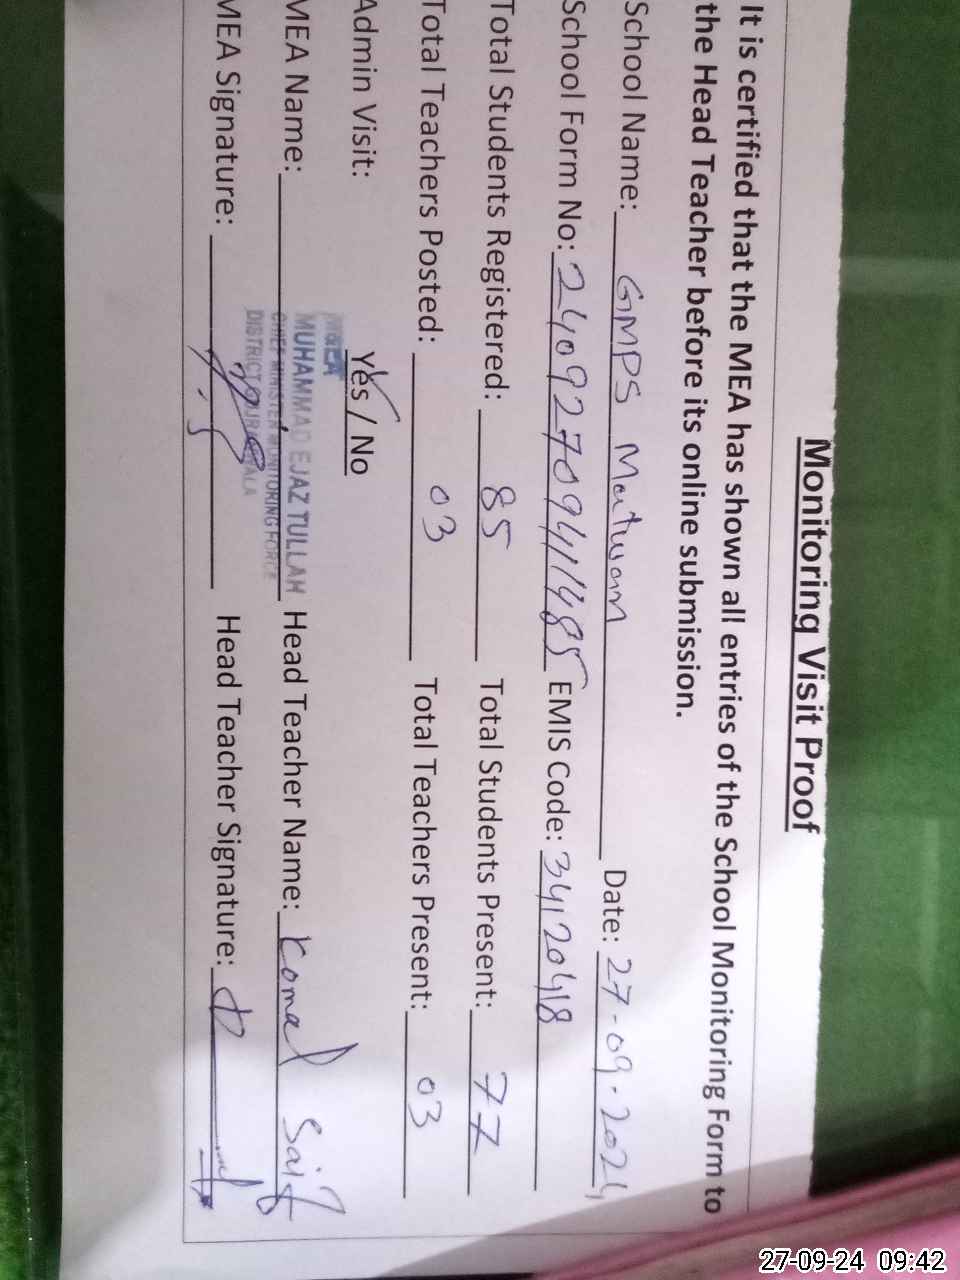 Monitoring Visit Proof
It is certified that the MEA has shown all entries of the School Monitoring Form to
the Head Teacher before its online submission.
School Name: GMPS Date: 27-09-2024
School Form No: EMIS Code: 34120418
Total Students Registered: 85 Total Students Present: 77
Total Teachers Posted: 03 Total Teachers Present: 03
Admin Visit: Yes / No
MEA
MUHAMMAD EJAZ TULLAH
MEA Name: Head Teacher Name: Komal Saif
CHIEF MINISTER MONITORING FORCE
DISTRICT GUJRANWALA
MEA Signature: Head Teacher Signature:
27-09-24 09:42